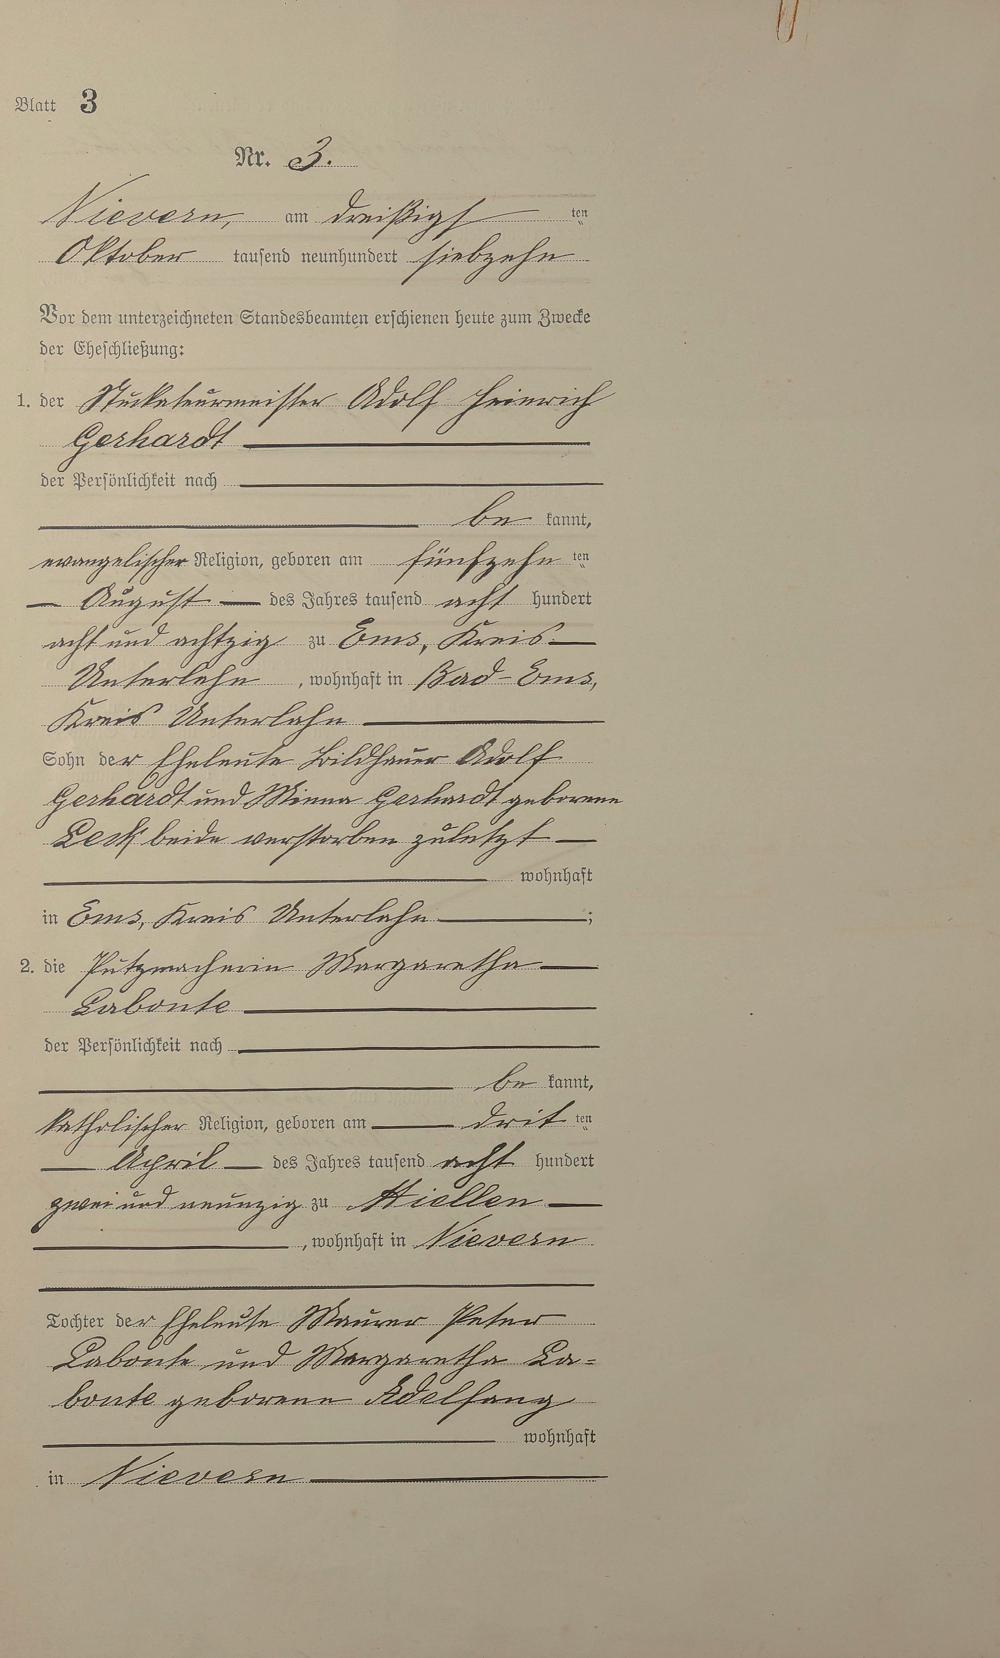 Blatt 3
Nr. 3.
Nievern, am dreißigsten
Oktober tausend neunhundert siebzehn
Vor dem unterzeichneten Standesbeamten erschienen heute zum Zwecke
der Eheschließung:
1. der Stuckateurmeister Adolf Heinrich
Gerhardt
der Persönlichkeit nach
be kannt,
evangelischer Religion, geboren am fünfzehn ten
August des Jahres tausend acht hundert
acht und achtzig zu Ems, Kreis
Unterlahn, wohnhaft in Bad-Ems,
Kreis Unterlahn
Sohn der Eheleute Bildhauer Adolf
Gerhardt und Minna Gerhardt geborene
Leck beide verstorben zuletzt
wohnhaft
in Ems, Kreis Unterlahn ;
2. die Putzmacherin Margaretha
Labonte
der Persönlichkeit nach
be kannt,
katholischer Religion, geboren am drit ten
April des Jahres tausend acht hundert
zwei und neunzig zu
, wohnhaft in Nievern
Tochter der Eheleute Maurer Peter
Labonte und Margaretha La=
bonte geborene Adelfang
wohnhaft
in Nievern